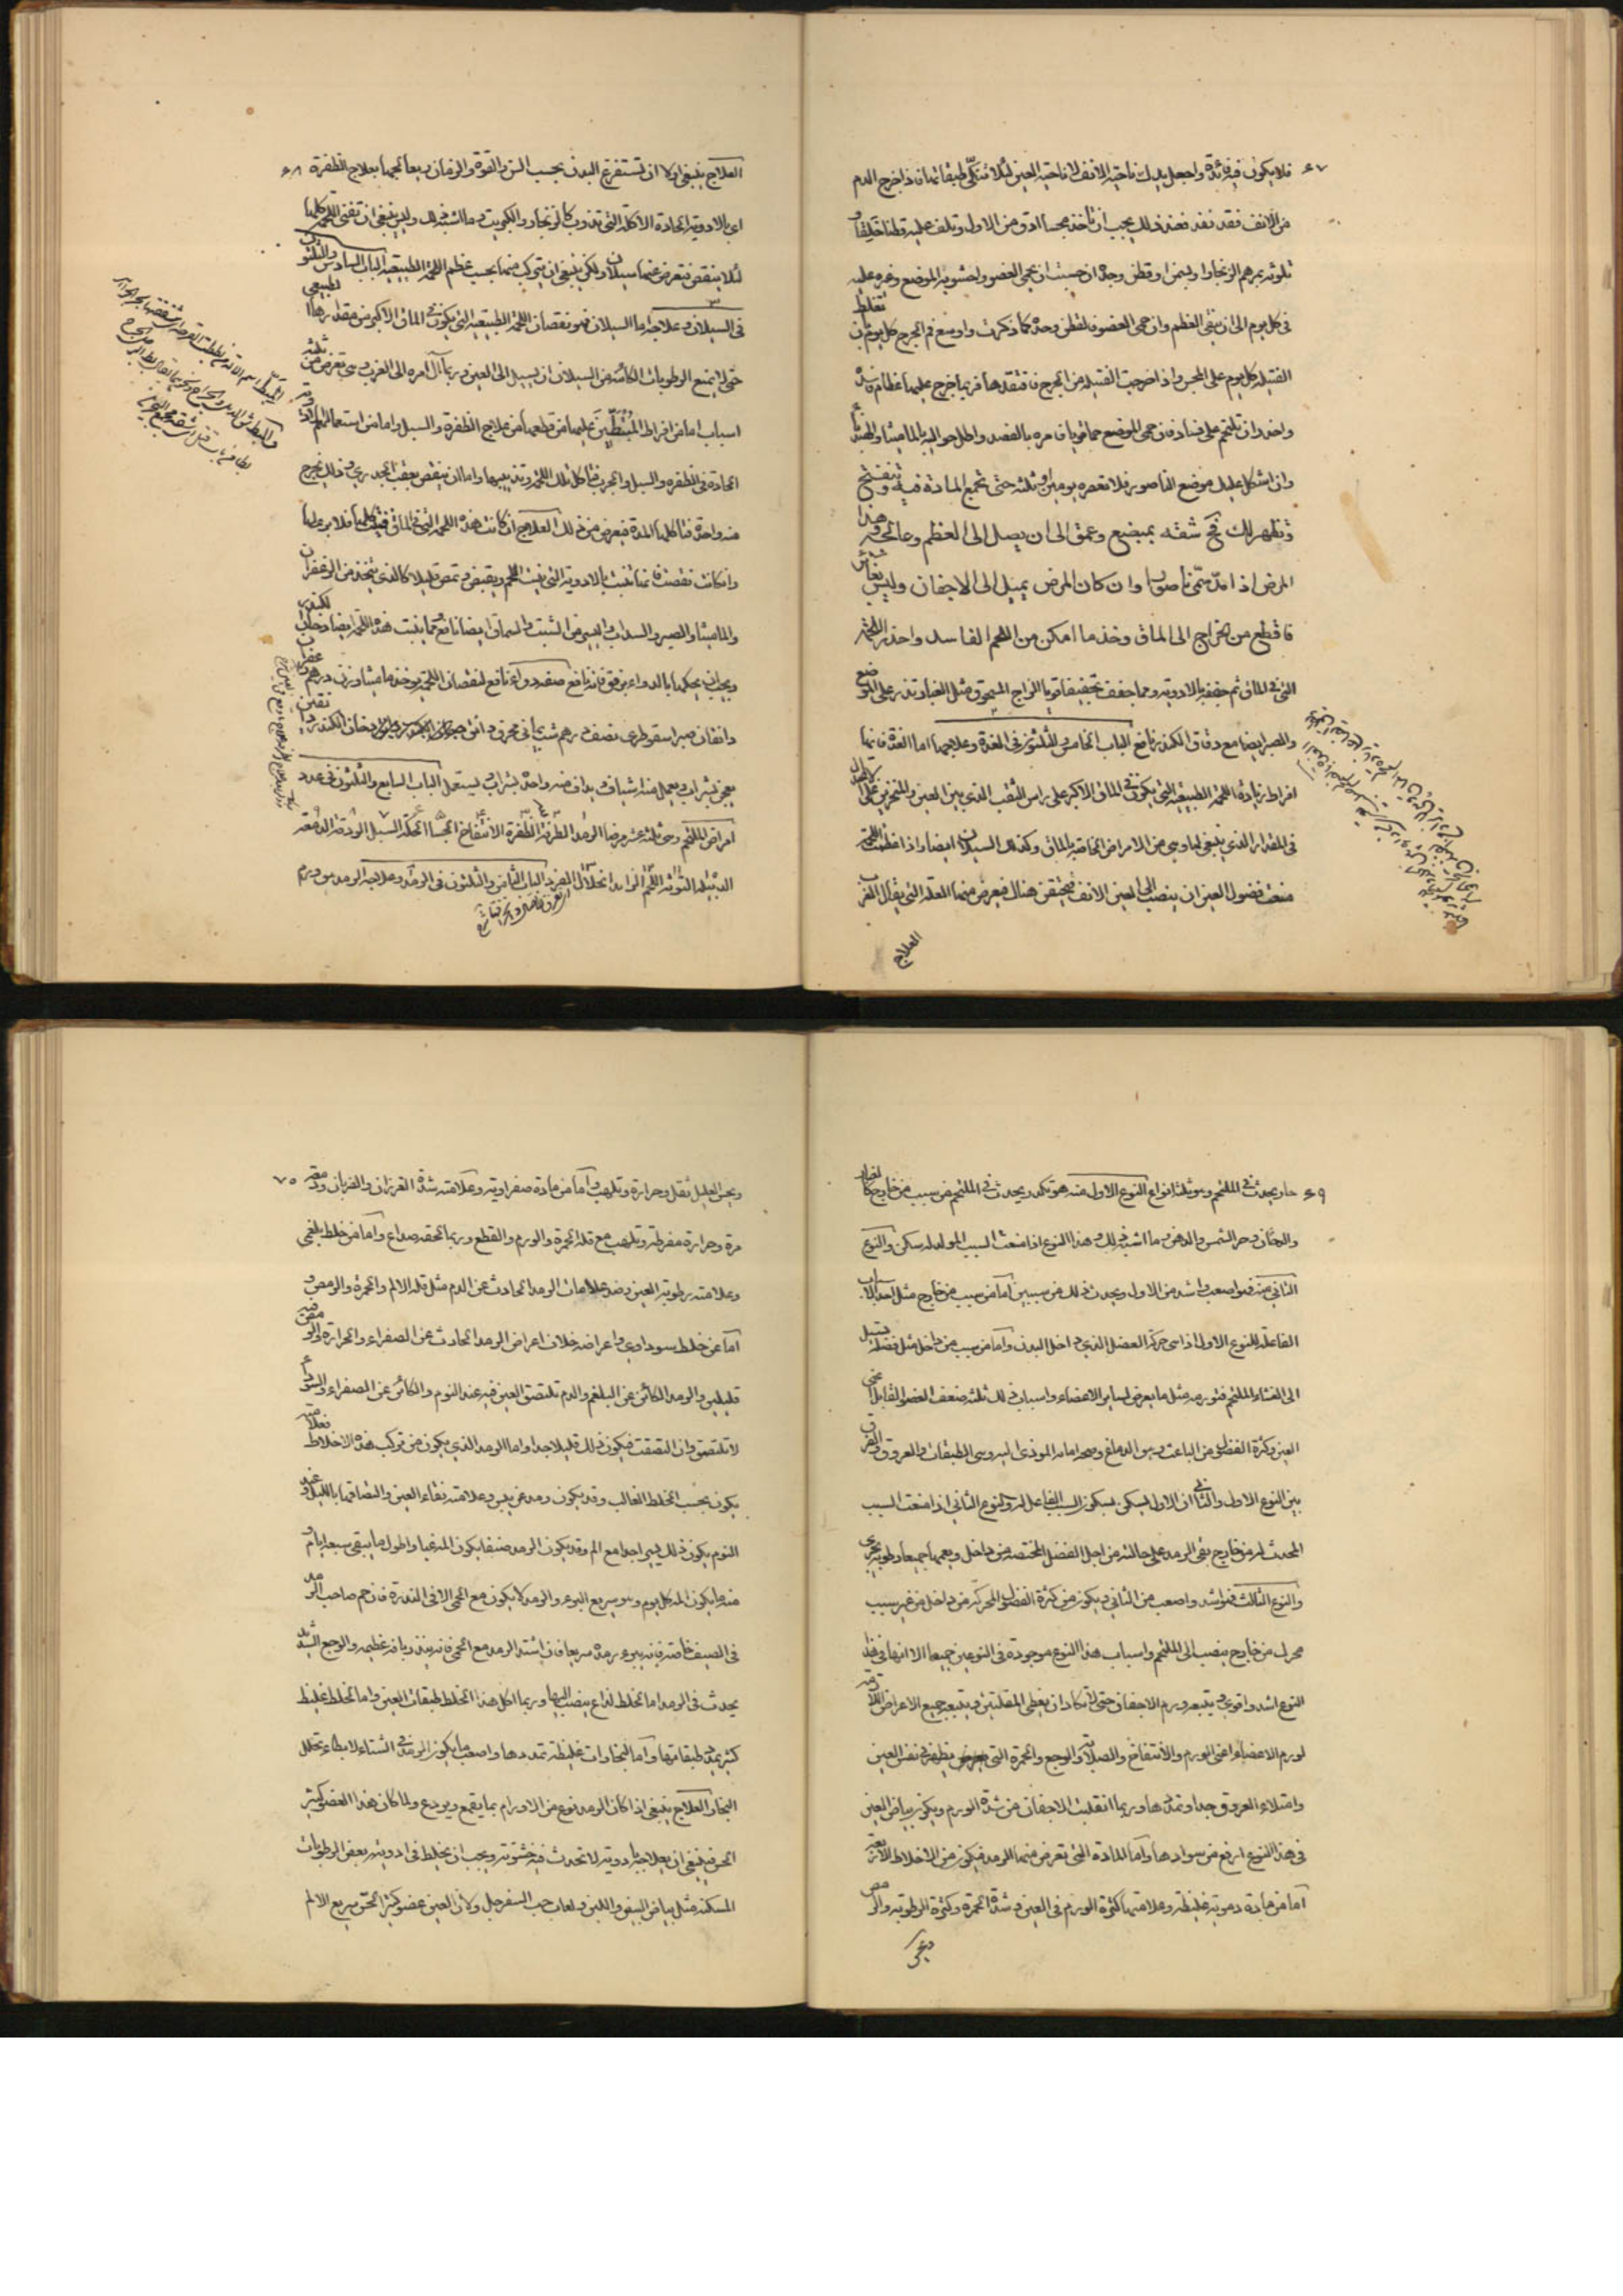 ٦٧
فلا يكون فيه فائدة واجعل يدك ناحية الانف لا ناحية العين لئلا تنكى طبقاتها فاذا خرج الدم
من الانف فقد نفد فعند ذلك يجب ان تأخذ مجسا ادق من الاول وتلف عليه قطنا خلقا و
تلوثه بمرهم الزنجار او بسمن او قطن وحده ان خشيت ان يحمى العضو وتحشو به الموضع وغيره عليه
فى كل يوم الى ان ينقى العظم وان حمى العضو فبقطن وحده كما ذكرت واوسع فم الجرح كل يوم بان تغلظ
الفتيله كل يوم على المجس واذا خرجت الفتيله من الجرح فافتقدها فربما خرج عليها عظام فاسدة
واحذر ان تلتحم على فساد فان حمى الموضع حما قويا فامره بالفصد واطل حواليه بالماميثا والهندبا
وان اشكل عليك موضع الناصور فلا تعصره يومين او ثلثه حتى تجمع المادة فيه وتنفتح
وتظهر لك ثم شقه بمبضع وعمق الى ان يصل الى العظم وعالجه وهذا
المرض اذا مد سمى ناصورا وان كان المرض يميل الى الاجفان وليس
فاقطع من الخراج الى الماق وخذ ما امكن من اللحم الفاسد واحذر اللحمة
التى فى الماق ثم جففه بالادويه ومما جفف تجفيفا قويا الزاج المسحوق مثل الغبار تذر على الموضع
والصبر ايضا مع دقاق الكندر نافع الباب الخامس والثلثون فى الغدة وعلاجها اما الغدة فانها
افراط زيادة اللحمة الطبيعيه التى يكون فى الماق الاكبر على راس الثقب الذى بين العين والمنخرين
فى المقدار الذى ينبغى لها وهى من الامراض الخاصة بالماق وكذلك السيلان ايضا واذا عظمت اللحمة
منعت فضول العين ان ينصب الى العين الانف فيحتقن هناك فيعرض منها العله التى يقال الغرب
العلاج
٦٨
العلاج ينبغى اولا ان تستفرغ البدن بحسب السن والقوة والزمان ويعالجها بعلاج الظفرة
اى بالادوية الحادة الاكاله التى تذوب كالزنجار والكبريت وما اشبه ذلك وليس ينبغى ان تفنى اللحمة كلها
لئلا ينقص فتعرض عنها سيلان ولكن ينبغى ان يترك منها بحسب عظم اللحمة الطبيعيه الباب السادس والثلثون
فى السيلان وعلاجه اما السيلان فهو نقصان اللحمة الطبيعيه التى يكون فى الماق الاكبر من مقدارها الطبيعى
حتى لا يمنع الرطوبات الكائنه من السيلان ان يسيل الى العين وربما آل امره الى الغرب وهى تعرض من ثلثه
اسباب اما من افراط المتطببين عليها من قطعها من علاج الظفرة والسبل واما من استعمالهم الادوية
الحادة فى الظفرة والسبل والجرب فتأكل تلك اللحمة وتذيبها واما ان ينقص بعقب الجدرى وذلك يخرج
منه واحدة فتاكلها المدة فيعرض من ذلك العلاج ان كانت هذه اللحمة التى فى الماق فنيت كلها فلا برء لها
وان كانت نقصت فانها تنبت بالادوية التى تنبت اللحم ويقبض وتمص قليلا كالذى يتخذ من الزعفران
والماميثا والصبر والسداب واليسير من الشبت والسماق ايضا نافع ومما ينبت هذه اللحمة ايضا دخان الكندر
ويجب ان يحكها بالدواء برفق فانه نافع صفة دواء نافع لنقصان اللحمة يوخذ ماميثا وزن درهم زعفران
دانقان صبر اسقوطرى نصف درهم شب يمانى محرق دانق دخان الكندر دانقين
يعجن بشراب ويعمل منه اشياف ويداف منه واحدة بشراب ويستعمل الباب السابع والثلثون فى عدد
امراض الملتحم وهى ثلثه عشر مرضا الرمد الطرفة الظفرة الانتفاخ الجسا الحكة السبل الودقة الدمعة
الدبيله التوثه اللحم الزايد انحلال الفرد الباب الثامن والثلثون فى الرمد وعلاجه الرمد هو ورم
٦٩
حار يحدث فى الملتحم وهو ثلثة انواع النوع الاول منه هو تكدر يحدث فى الملتحم من سبب من خارج كالغبار
والدخان وحر الشمس والدهن وما اشبه ذلك وهذا النوع اذا منعت السبب المولد له سكن والنوع
الثانى منه فهو اصعب واشد من الاول ويحدث ذلك من سببين اما من سبب من خارج مثل احد الاسباب
الفاعله للنوع الاول اذا حركة العضل الذى داخل البدن واما من سبب من داخل مثل فضله يسيل
الى الغشاء الملتحم فتورمه مثل ما يعرض لساير الاعضاء واسباب ذلك ثلثه ضعف العضو القابل اعنى
العين وكثرة الفضل من الباعث وهو الدماغ وصحة المودى اليه وهى الطبقات والعروق والفرق
بين النوع الاول والثانى ان الاول يسكن بسكون السبب الفاعل له والنوع الثانى اذا منعت السبب
المحدث له من خارج بقى الرمد على حالته من اجل الفضل المختصه من داخل ويعمهما جميعا رطوبه تجرى
والنوع الثالث فهو اشد واصعب من الثانى ويكون من كثرة الفضل المحركة من داخل من غير سبب
محرك من خارج ينصب الى الملتحم واسباب هذا النوع موجودة فى النوعين جميعا الا انها فى هذا
النوع اشد واقوى ويتبعه ورم الاجفان حتى لا تكاد ان يغطى المقلتين ويتبعه جميع الاعراض اللازمة
لورم الاعضاء اعنى الورم والانتفاخ والصلابة والوجع والحمرة التى يظهر فى نفس العين
وامتلاء العروق جدا وتمددها وربما انقلبت الاجفان من شدة الورم ويكون بياض العين
فى هذا النوع ارفع من سوادها واما المادة التى تعرض منها الرمد فيكون من الاخلاط الاربعة
اما من مادة دموية غليظة وعلامتها كثرة الورم فى العين وشدة الحمرة وكثرة الرطوبه والرمص
ويحس
٧٠
ويحس العليل بثقل وحرارة وتلهب واما من مادة صفراوية وعلامته شدة الغرزان والضربان ودمعة
مرة وحرارة مفرطة وتلهب مع قلة الحمرة والورم والقطع وربما لحقه صداع واما من خلط بلغمى
وعلامته رطوبة العين وضد علامات الرمد الحادث عن الدم مثل قلة الالم والحمرة والرمص و
اما عن خلط سوداوى واعراضه خلاف اعراض الرمد الحادث عن الصفراء والحرارة والرمص فيه
قليلين والرمد الكائن عن البلغم والدم تلتصق العين فيه عند النوم والكائن عن الصفراء والسوداء
لا تلتصق وان التصقت فيكون ذلك قليلا جدا واما الرمد الذى يكون من تركب هذه الاخلاط فعلامته
يكون بحسب الخلط الغالب وقد يكون رمد عن يبس وعلامته نقاء العين والتصاقها بالليل وعند
النوم يكون ذلك يسيرا جدا مع الم وقد يكون الرمد صنفا يكون المه غبا واطول ما يبقى سبعة ايام و
منه ما يكون المه كل يوم وهو سريع البرء والرمد لا يكون مع الحمى الا فى الندرة فان حم صاحب الرمد
فى الصيف خاصة فانه يبرء رمده سريعا فان اشتد الرمد مع الحمى فانه ينذر بافة عظيمه والوجع الشديد
يحدث فى الرمد اما لخلط لذاع ينصب اليها وربما اكل هذا الخلط طبقات العين واما لخلط غليظ
كثير يمدد طبقاتها واما لبخارات غليظة تمددها واصعب ما يكون الرمد فى الشتاء لابطاء تحلل
البخار العلاج ينبغى اذا كان الرمد نوع من الاورام بما يقمع ويردع ولما كان هذا العضو كثير
الحس فينبغى ان يعالج بادوية لا تحدث فيه خشونة ويجب ان يخلط فى ادويته بعض الرطوبات
المسكنه مثل بياض البيض واللبن ولعاب حب السفرجل ولان العين عضو كثير الحس سريع الالم